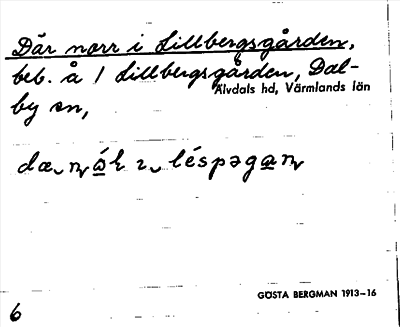 Där norr i Lillbergsgården,
beb. å / Lillbergsgården, Dal-
Älvdals hd, Värmlands län
by sn,
GÖSTA BERGMAN 1913–16
6